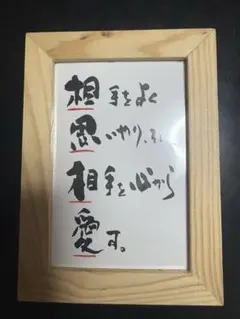 相手をよく
思いやり、
相手を心から
愛す。